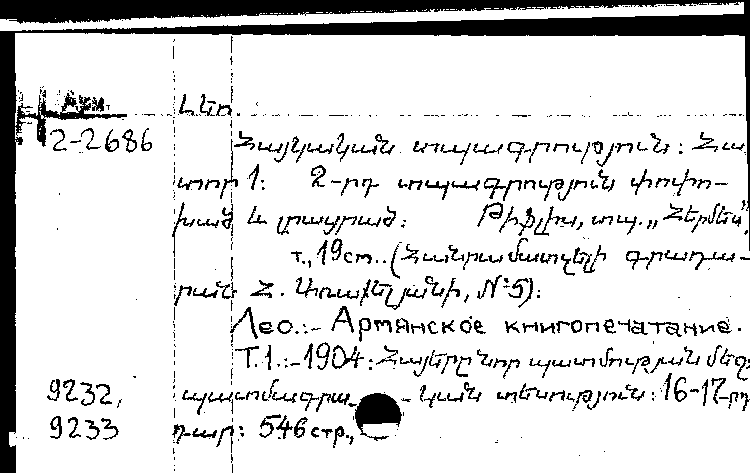 Арм.
Լեո.
2-2686
Հայկական տպագրություն: Հա
տոր 1: 2-րդ տպագրություն փոփո-
խած և լրացրած: Թիֆլիս, տպ. „Հերմես”,
т., 19см.. (Հանրամատչելի գրադա-
րան Հ. Առաքելյանի, №5):
Лео.:- Армянское книгопечатание.
Т.1.:-1904: Հայերը նոր պատմության մեջ
9232, պատմագրա- - կան տեսություն: 16-17-րդ
9233 դար: 546стр.,